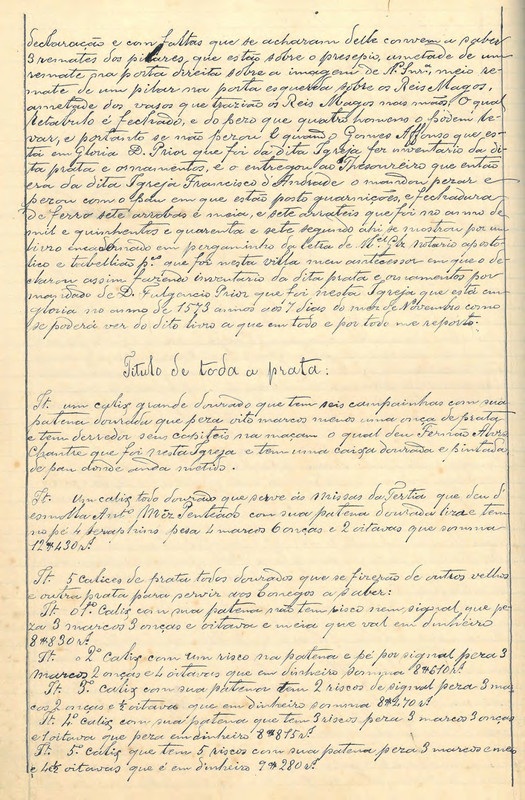 declaração e com faltas que se acharam delle convem a saber
3 remates dos pilares, que estão sobre o presepio, ametade de um
remate na porta direita sobre a imagem de N. Snrª, meio re-
mate de um pilar na porta esquerda sobre os Reis Magos,
ametade dos vasos que trazião os Reis Magos nas mãos, O qual
retabulo é fechado, e do pezo que quatro homens o podem le-
var, e portanto se não pezou E quando Gomes Affonso que es-
tá em Gloria D. Prior que foi da dita Igreja fez inventario da di-
ta prata e ornamentos, é o entregou ao Thesoureiro que então
era da dita Igreja Francisco d'Andrade o mandou pezar e
pezou com o páu em que estão posto guarnições, e fechadura
de ferro sete arrobas e maia, e sete arrateis que foi no anno de
mil e quinhentos e quarenta e sete segundo ahi se mostrou por um
livro encadernado em pergaminho da letra de notario aposto-
lico e tabellião pº que foi nesta villa meu antecessor em que o de-
clarou assim fazendo inventario da dita prata e ornamentos por
mandado de D. Fulgencio Prior que foi nesta Igreja que está em
gloria no anno de 1573 annos aos 7 dias do mez de Novembro como
se poderá ver do dito livro a que em todo e por todo me reporto.
Titulo de toda a prata:
It. um calix grande dourado que tem seis campainhas com sua
patena dourada que peza oito marcos menos uma onça de prata
e tem derredor seus capiteis na maçam o qual deu Fernão Alvrs
Chantre que foi nesta Igreja e tem uma caixa dourada e pintada
de pau donde anda metido.
It. Um calix todo dourado que serve ás missas da Tertia que deu d'
esmolla Antº Miz Penteado com sua patena dourada liza e tem
no pé 4 seraphins pesa 4 marcos 6 onças e 2 oitavas que somma
12#430 rs.
It. 5 calices de prata todos dourados que se fizerão de outros velhos
e outra prata para servir aos Conegos a saber:
It. o 1º Calix com sua patena não tem risco nem signal que pe-
za 3 marcos 3 onças e oitava e meia que val em dinheiro
8#830 rs.
It. o 2º Calix com um risco na patena e pé por signal peza 3
marcos 2 onças e 4 oitavas que em dinheiro somma 8#610 rs.
It. 3º Calix com sua patena tem 2 riscos de signal peza 3 mar
cos 2 onças e ½ oitavas que em dinheiro somma 8#270 rs.
It. 4º calix com sua patena que tem 3 riscos peza 3 marcos 3 onças
e 1 oitava que peza em dinheiro 8#815 rs.
It. 5º Calix que tem 5 riscos com sua patena peza 3 marcos e meio
e 4½ oitavas que é em dinheiro 9#280 rs.